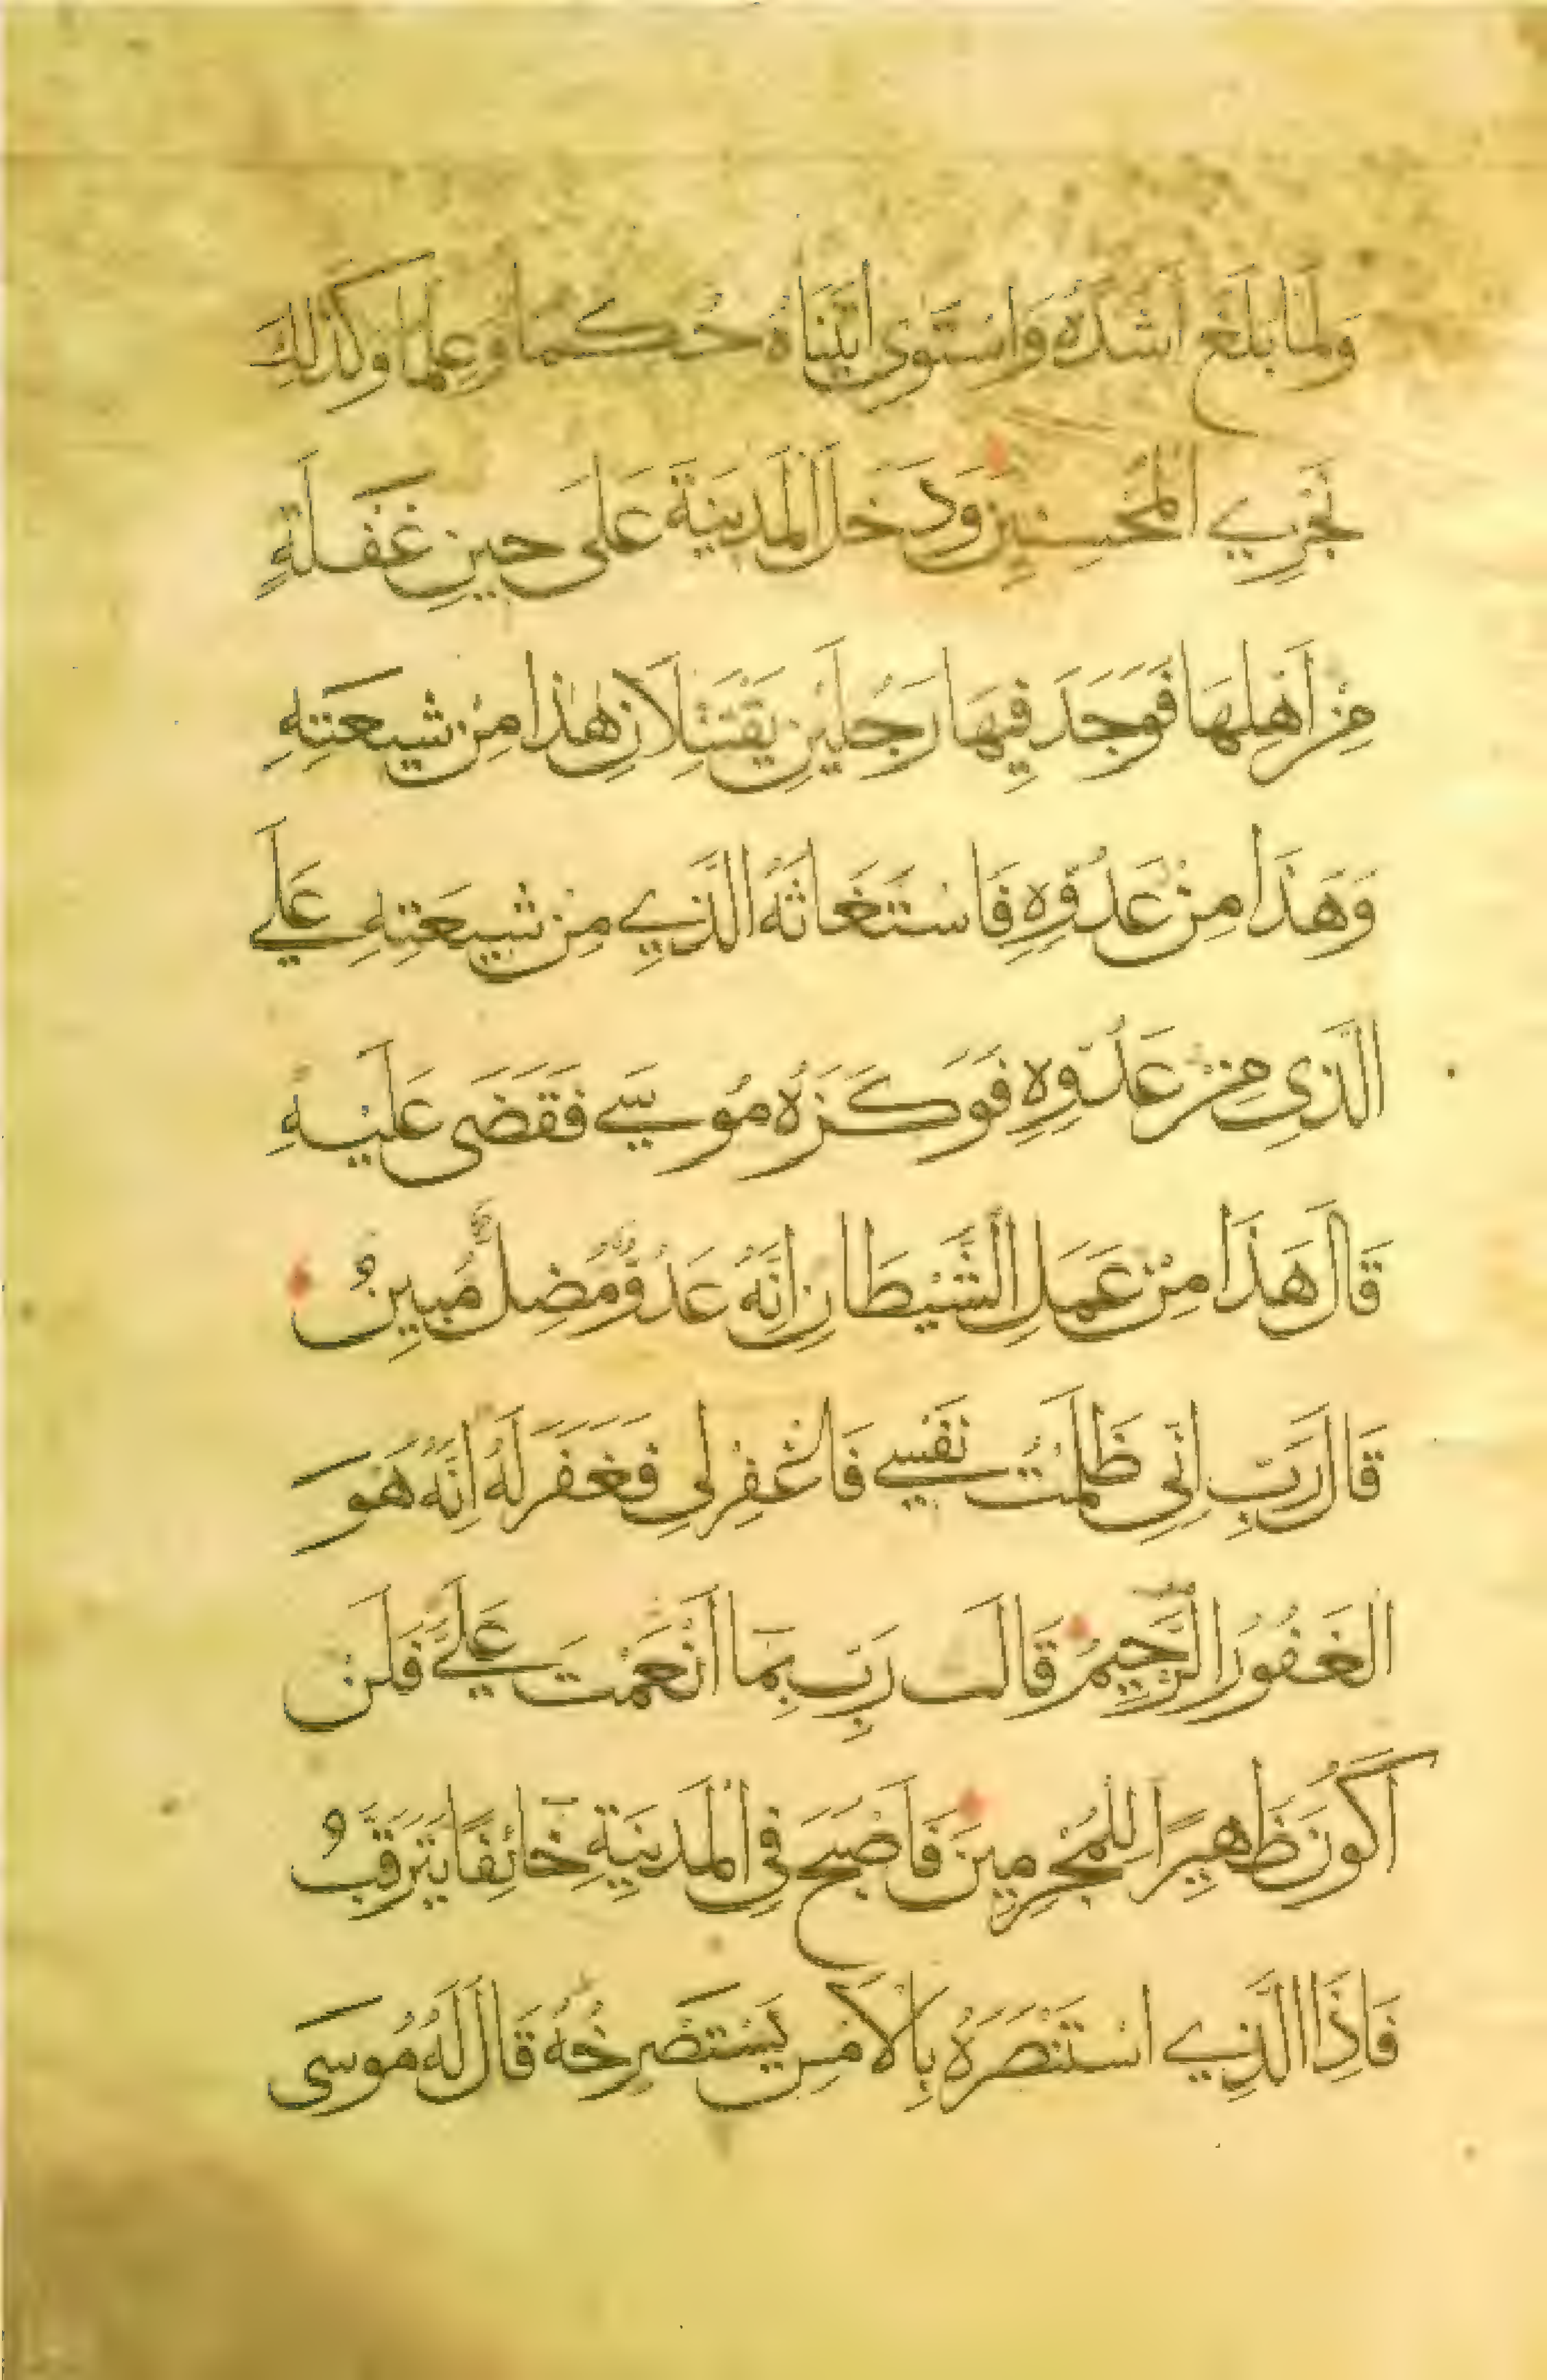 وَلَمَّا بَلَغَ اَشُدَّهُ وَاسْتَوَى اٰتَيْنَاهُ حُكْمًا وَعِلْمًا وَكَذَلِكَ
نَجْزِي الْمُحْسِنِينَ وَدَخَلَ الْمَدِينَةَ عَلَى حِينِ غَفْلَةٍ
مِنْ اَهْلِهَا فَوَجَدَ فِيهَا رَجُلَيْنِ يَقْتَتِلَانِ هٰذَا مِنْ شِيعَتِهِ
وَهَذَا مِنْ عَدُوِّهِ فَاسْتَغَاثَهُ الَّذِي مِنْ شِيعَتِهِ عَلَي
الَّذِى مِنْ عَدُوِّهِ فَوَكَزَهُ مُوسَي فَقَضَى عَلَيْهِ
قَالَ هَذَا مِنْ عَمَلِ الشَّيْطَانِ اِنَّهُ عَدُوٌّ مُضِلٌّ مُبِينٌ
قَالَ رَبِّ اِنِّى ظَلَمْتُ نَفْسِي فَاغْفِرْ لِى فَغَفَرَ لَهُ اِنَّهُ هُوَ
الْغَفُورُ الرَّحِيمُ قَالَ رَبِّ بِمَا اَنْعَمْتَ عَلَيَّ فَلَنْ
اَكُونَ ظَهِيرًا لِلْمُجْرِمِينَ فَاَصْبَحَ فِى الْمَدِينَةِ خَائِفًا يَتَرَقَّبُ
فَاِذَا الَّذِي اسْتَنْصَرَهُ بِالْاَمْسِ يَسْتَصْرِخُهُ قَالَ لَهُ مُوسَى